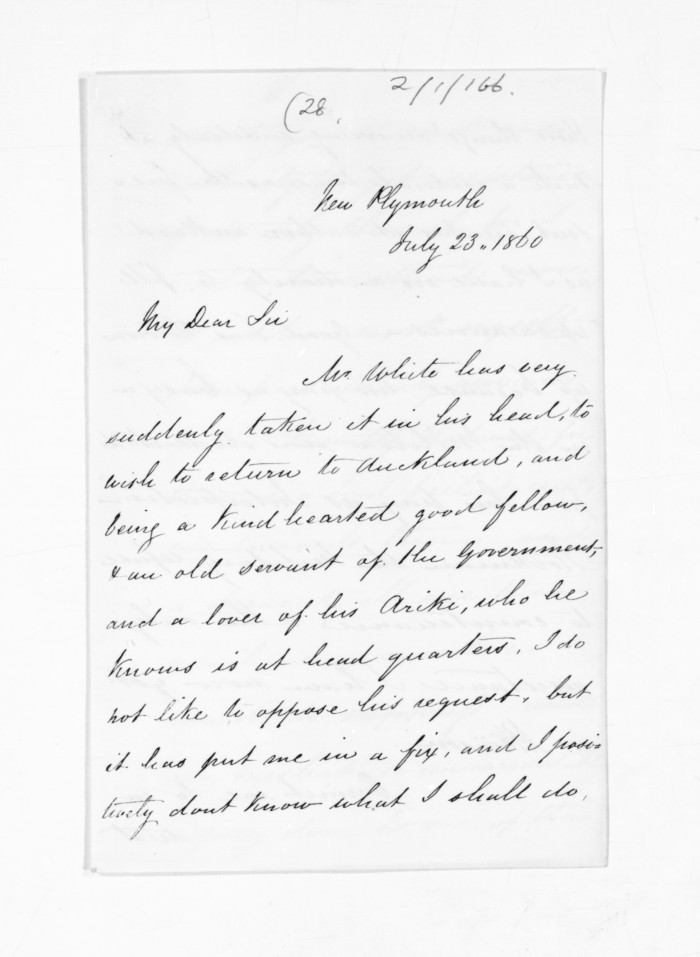 2/1/166.
(28.
New Plymouth
July 23. 1860
My Dear Sir
Mr. White has very
suddenly taken it in his head, to
wish to return to Auckland, and
being a kind hearted good fellow,
& an old servant of the Government,
and a lover of his Ariki, who he
knows is at head quarters, I do
not like to oppose his request, but
it has put me in a fix, and I posi=
tively dont know what I shall do,